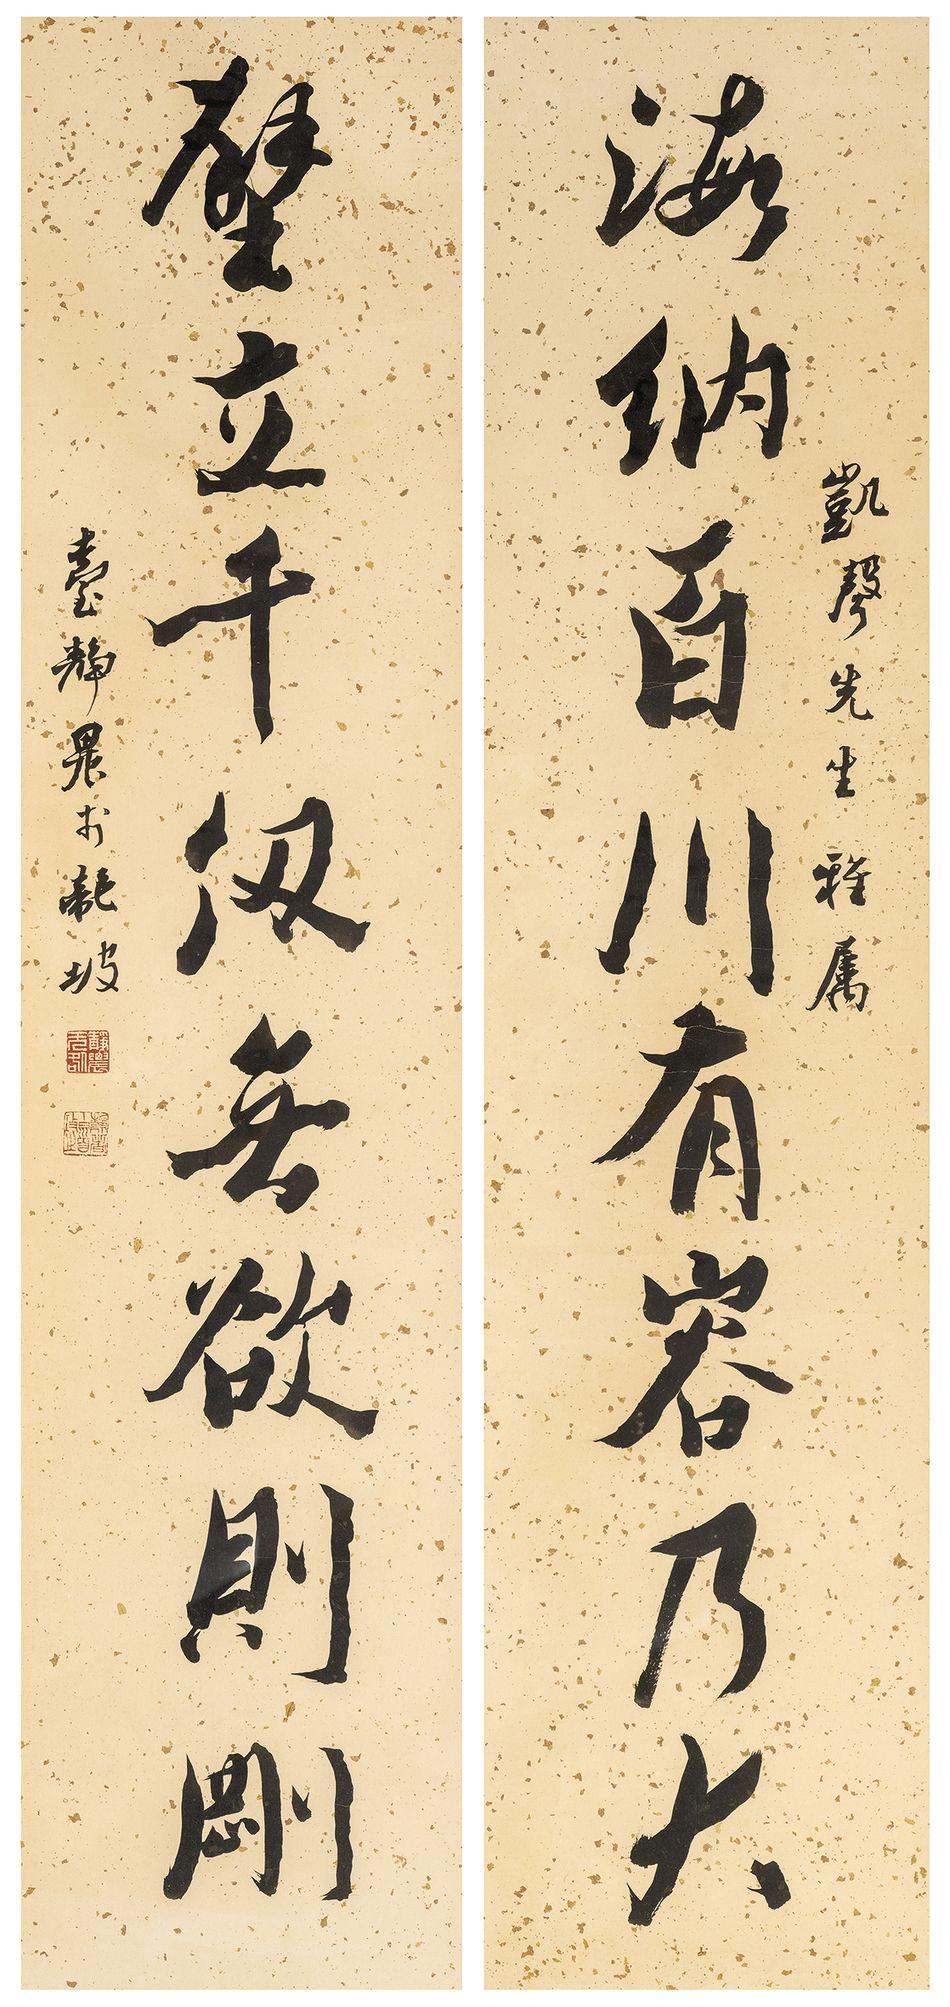 凱聲先生雅属
海納百川有容乃大
壁立千仞無欲則剛
臺靜農於龍坡